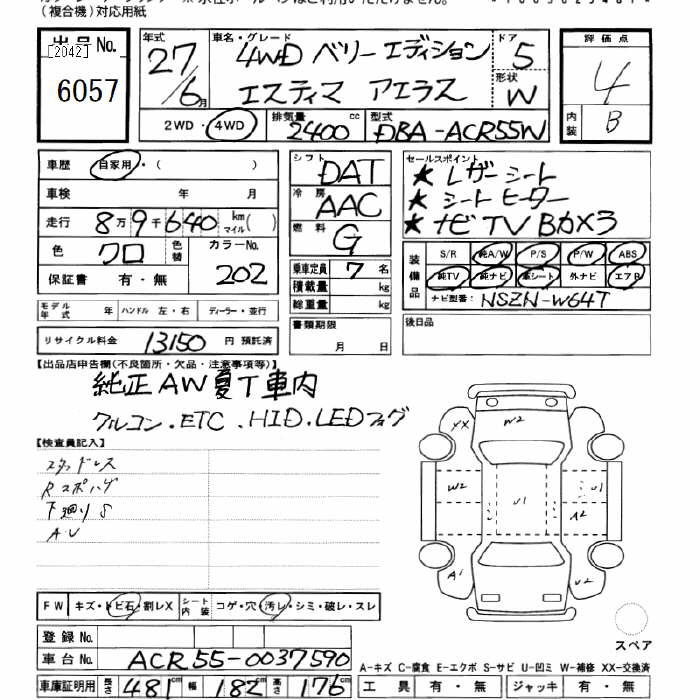 (複合機)対応用紙
出品No.
[2042]
6057
年式
27/6月
車名・グレード
4WD ベリー エディション
エスティマ アエラス
ドア
5
形状
W
評価点
4
内装
B
2WD・4WD
排気量
2400 cc
型式
DBA-ACR55W
車歴 自家用・( )
車検 年 月
走行 8万9千640 km マイル( )
色 クロ 色替 カラーNo. 202
保証書 有・無
シフト DAT
冷房 AAC
燃料 G
乗車定員 7 名
積載量 kg
総重量 kg
セールスポイント
★ レザーシート
★ シートヒーター
★ ナビTVBカメラ
装備品
S/R 純A/W P/S P/W ABS
純TV 純ナビ 革シート 外ナビ エアB
ナビ型番: NSZN-W64T
モデル年式 年 ハンドル 左・右 ディーラー・並行
書類期限 月 日
後日品
リサイクル料金 13150 円 預託済
【出品店申告欄(不良箇所・欠品・注意事項等)】
純正AW夏T車内
クルコン.ETC.HID.LEDフォグ
【検査員記入】
スタッドレス
下廻りS
XX W2
W2 U1 U1
A2
A1 U2
FW キズ・トビ石・割レX シート内装 コゲ・穴・汚レ・シミ・破レ・スレ
スペア
登録No.
車台No. ACR55-0037590
A-キズ C-腐食 E-エクボ S-サビ U-凹ミ W-補修 XX-交換済
車庫証明用 長さ 481cm 幅 182cm 高さ 176cm 工具 有・無 ジャッキ 有・無